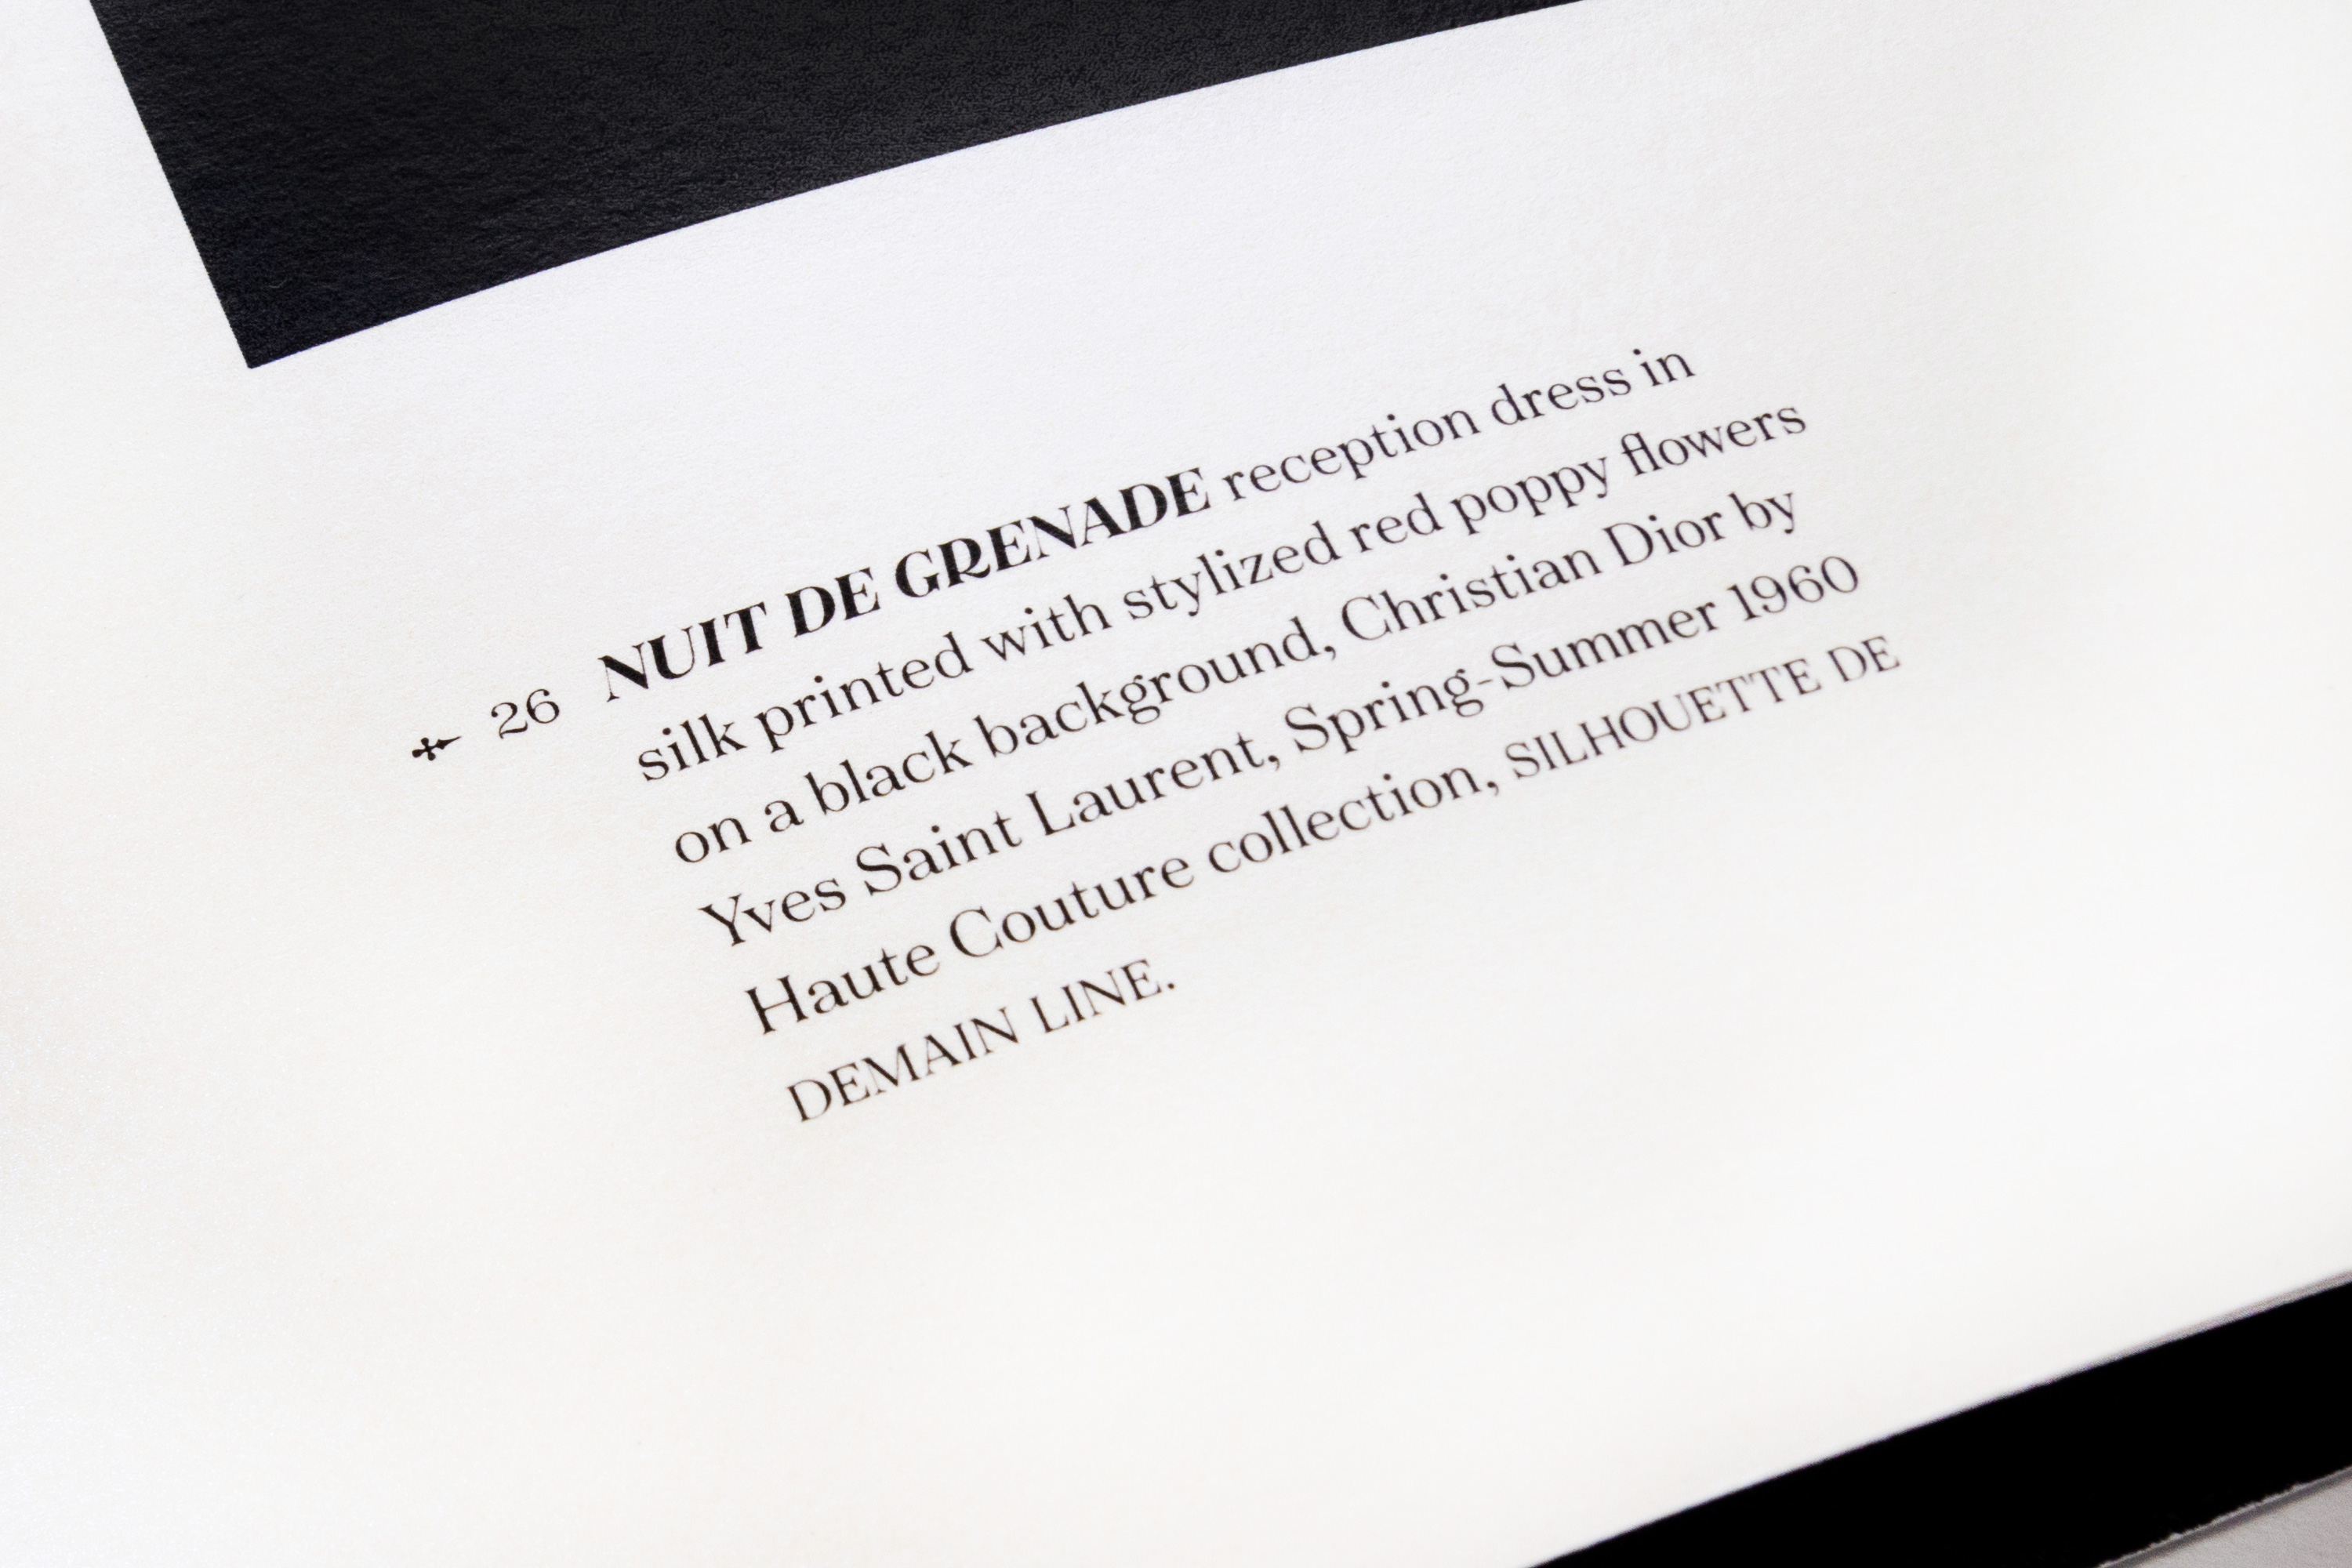 26 NUIT DE GRENADE reception dress in
silk printed with stylized red poppy flowers
on a black background, Christian Dior by
Yves Saint Laurent, Spring-Summer 1960
Haute Couture collection, SILHOUETTE DE
DEMAIN LINE.